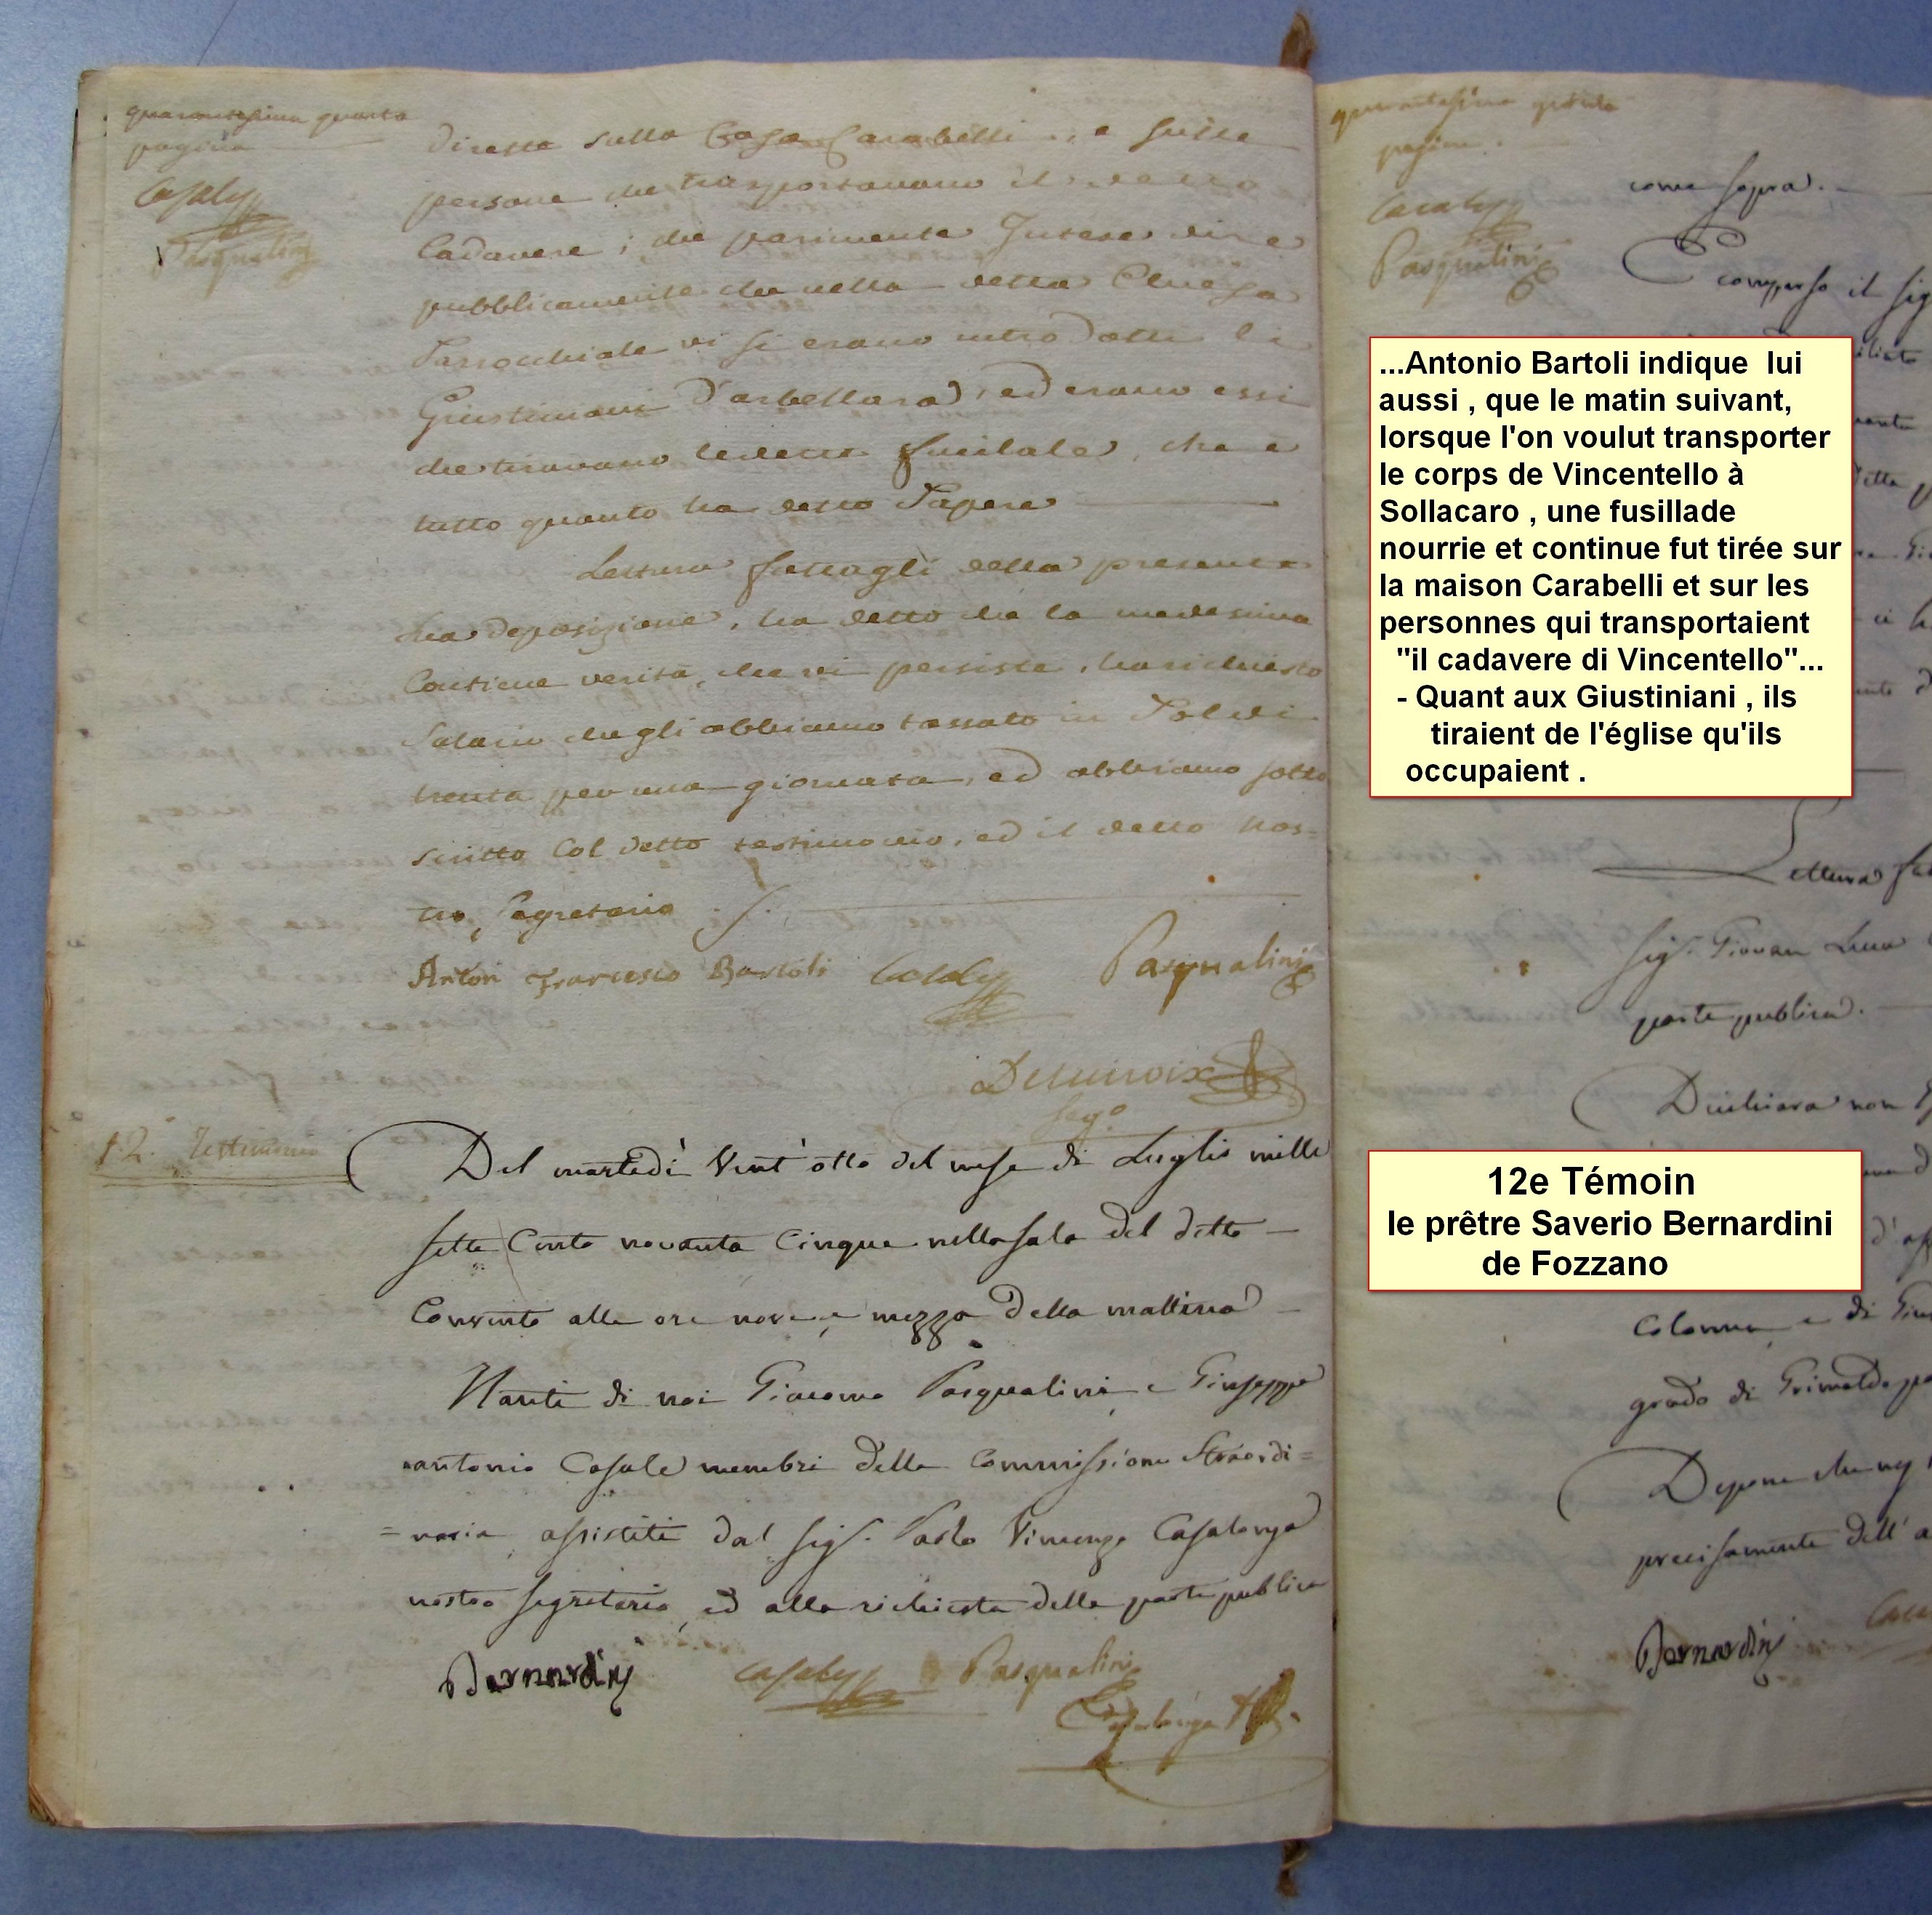 quarantesima quarta
pagina
Casale
Pasqualini
diretta sulla Casa Carabelli, e sulle
persone che trasportavano il detto
Cadavere; che parimente Intese dire
pubblicamente che nella detta Chiesa
Parrocchiale vi si erano introdotti li
Giustiniani d'arbellara, ed erano essi
che tiravano le dette fucilate, che è
tutto quanto ha detto Sapere
Lettura fattagli della presente
sua deposizione, ha detto che la medesima
Contiene verità, che vi persiste, ha richiesto
Salario che gli abbiamo tassato in Soldi
trenta per una giornata, ed abbiamo sotto
scritto Col detto testimonio, ed il detto nos=
tro Segretario
Anton Francesco Bartoli Casale Pasqualini
Delacroix
Seg.o
12. Testimonio
Del martedì Vent'otto del mese di Luglio mille
sette Cento novanta Cinque nella sala del detto
Convento alle ore nove e mezza della mattina
Nanti di noi Giacomo Pasqualini e Giuseppe
antonio Casale membri della Commissione Straordi=
=naria assistiti dal Sig.r Paolo Vincenzo Casalonga
nostro segretario, ed alla richiesta della parte publica
Bernardini Casale Pasqualini
Casalonga
pagina
Casale
Pasqualini
come sopra.
È comparso il Sig
...Antonio Bartoli indique lui
aussi , que le matin suivant,
lorsque l'on voulut transporter
le corps de Vincentello à
Sollacaro , une fusillade
nourrie et continue fut tirée sur
la maison Carabelli et sur les
personnes qui transportaient
"il cadavere di Vincentello"...
- Quant aux Giustiniani , ils
tiraient de l'église qu'ils
occupaient .
Lettura fat
Sig.r Giovan Luca
parte publica.
Dichiara non
12e Témoin
le prêtre Saverio Bernardini
de Fozzano
Colonna e di Giu
grado di Grimaldo pa
Depone che
precisamente dell' a
Bernardini